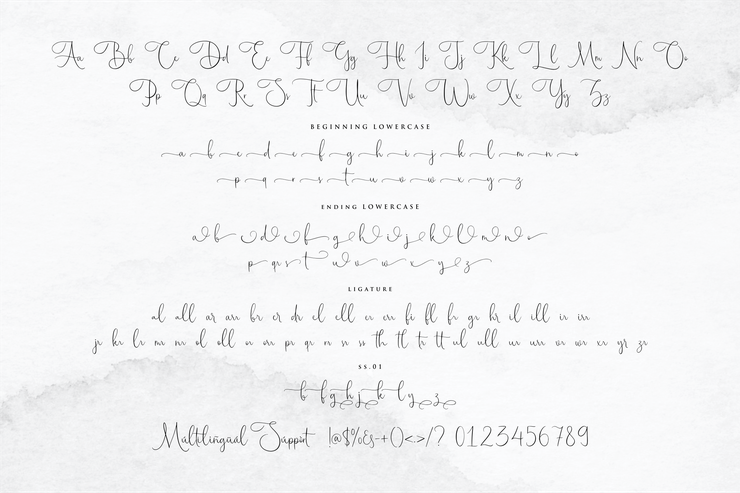 Aa Bb Cc Dd Ee Ff Gg Hh Ii Jj Kk Ll Mm Nn Oo
Pp Qq Rr Ss Tt Uu Vv Ww Xx Yy Zz
BEGINNING LOWERCASE
a b c d e f g h i j k l m n o
p q r s t u v w x y z
ENDING LOWERCASE
a b c d e f g h i j k l m n o
p q r s t u v w x y z
LIGATURE
al all ar an br cr dr el ell er en fi fl fr gr hr il ill ir in
jr kr lr mr nr ol oll or on pr qr rr sr ss th tl tr tt ul ull ur un vr wr xr yr zr
SS.01
b f g h j k l y z
Multilingual Support !@$%&-+()<>/? 0123456789